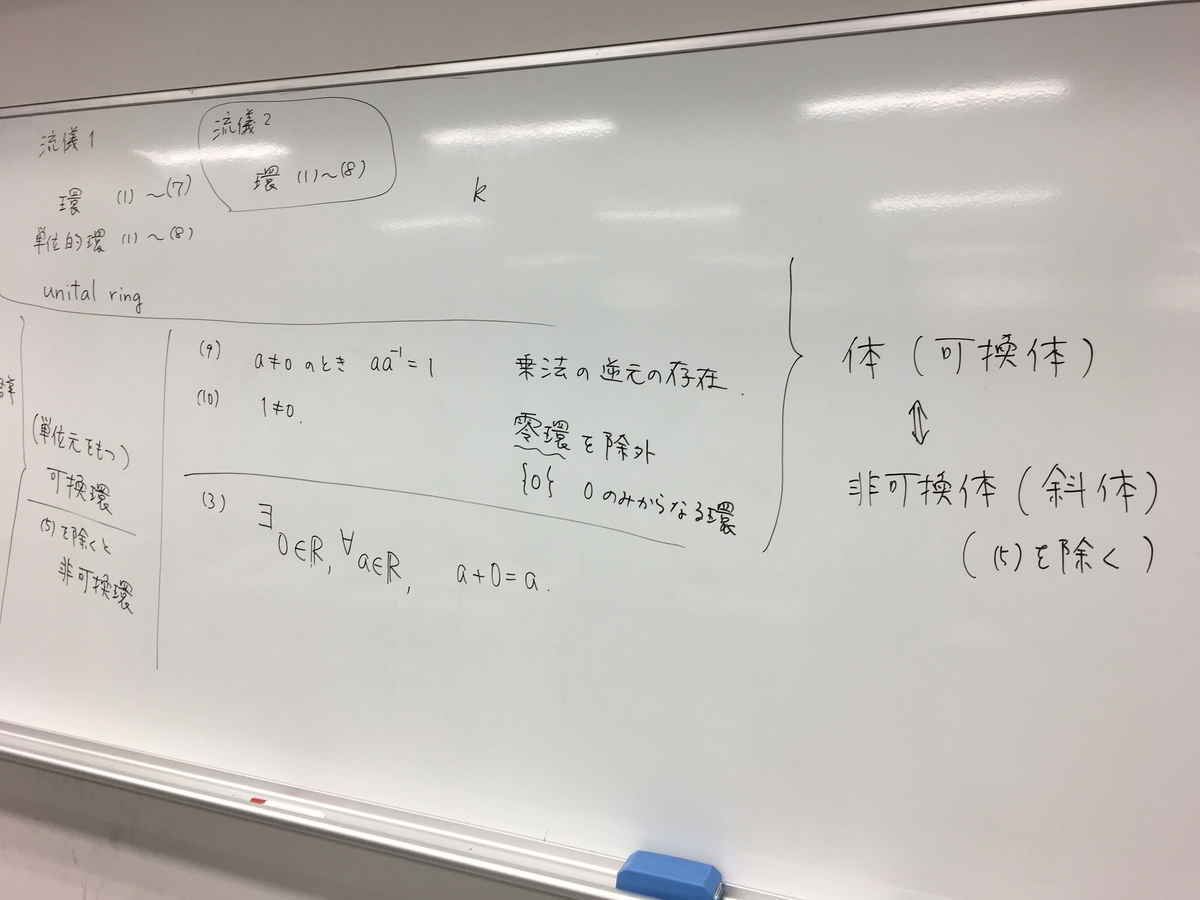 流儀1
環 (1)～(7)
単位的環 (1)～(8)
unital ring
流儀2
環 (1)～(8)
k
(単位元をもつ)
可換環
(5)を除くと
非可換環
(9) a≠0 のとき aa⁻¹=1 乗法の逆元の存在.
(10) 1≠0. 零環を除外
{0} 0のみからなる環
(3) ∃0∈R, ∀a∈R, a+0=a.
体 (可換体)
⇕
非可換体 (斜体)
((5)を除く)